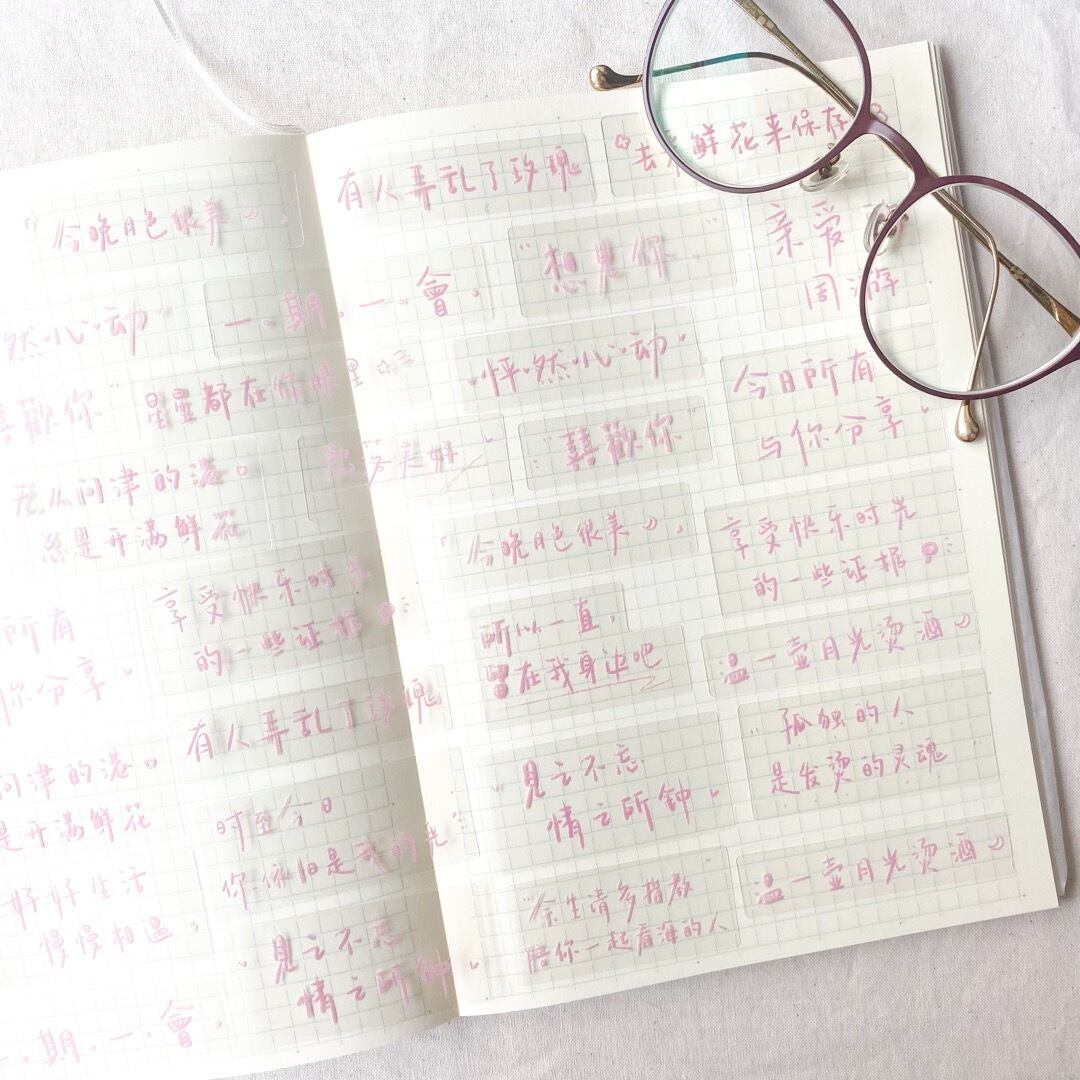 今晚月色很美
然心动
一.期.一.會.
喜歡你
星星都在你眼里
无从问津的港。
总是开满鲜花
所有
你分享.
享受快乐时光
的一些证据
有人弄乱了玫瑰
问津的港。
是开满鲜花
时至今日
你依旧是我的光
好好生活
慢慢相遇.
見之不忘
情之所钟
一.期.一.會.
有人弄乱了玫瑰
去 鲜花来保存
"想見你"
亲爱
周游
怦然心动
今日所有
与你分享
美好
"喜歡你"
今晚月色很美
享受快乐时光
的一些证据
所以一直,
留在我身边吧
温一壶月光烫酒
見之不忘
情之所钟
孤独的人
是发烫的灵魂
"余生请多指教"
陪你一起看海的人
温一壶月光烫酒